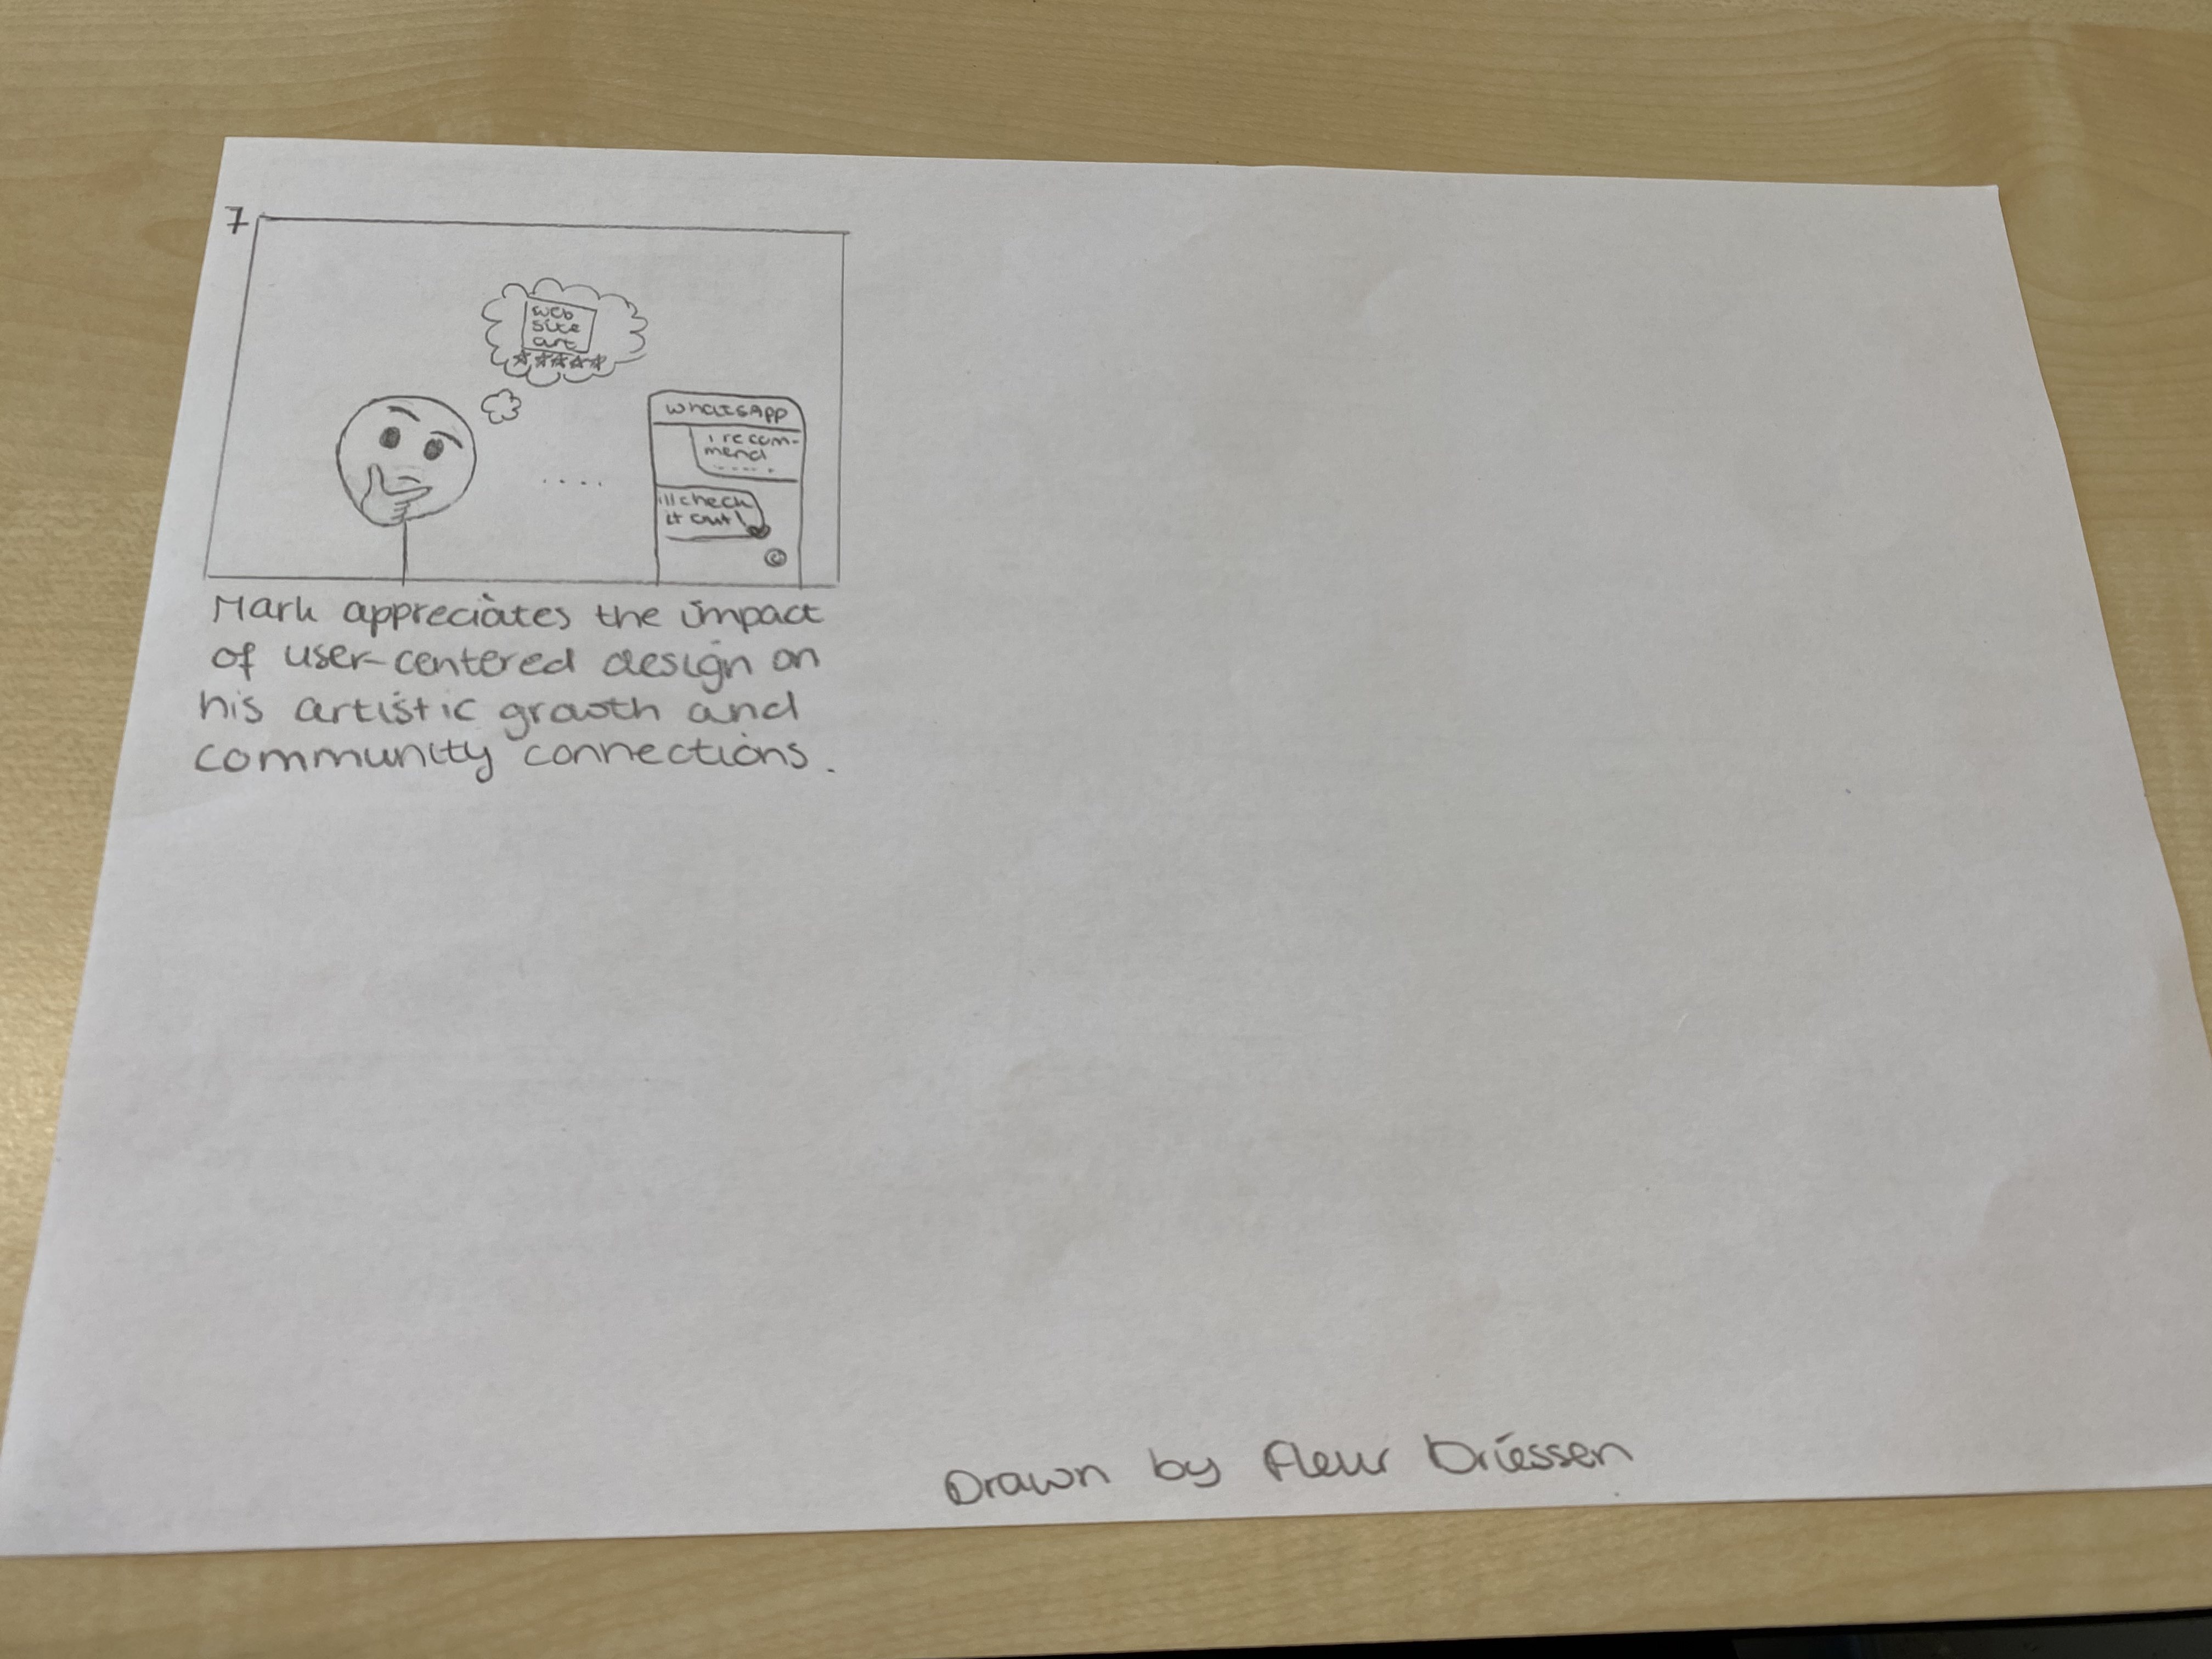 7
web
site
art
whatsApp
i recom-
mend
.....
ill check
it out!
Mark appreciates the impact
of user-centered design on
his artistic growth and
community connections.
Drawn by Fleur Driessen